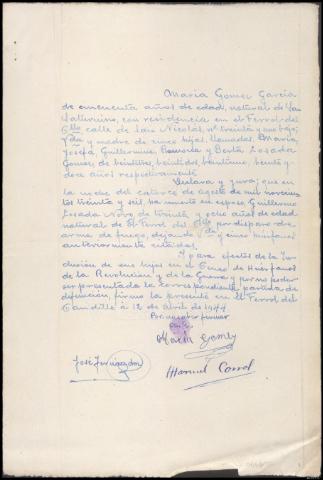 María Gomez García
de cincuenta años de edad, natural de San
Saturnino, con residencia en el Ferrol del
Cllo calle de San Nicolás, nº treinta y uno bajo;
Vda y madre de cinco hijos, llamados María,
Josefa, Guillermina, y Berta Losada
Gomez, de veintitres, veintidos, veintiuno, veinte y
doce años respectivamente
Declara y jura; que en
la noche del catorce de Agosto de mil novecien
tos treinta y seis, ha muerto su esposo Guillermo
Losada Novo de treinta y ocho años de edad
natural de El Ferrol del Cllo por disparo de
arma de fuego, dejando Vda y cinco huérfanos
anteriormente citados.
Y para efectos de la In-
clusión de sus hijos en el Censo de Huérfanos
de la Revolución y de la Guerra y por no poder
ser presentada la correspondiente partida de
defunción, firmo la presente en el Ferrol del
Caudillo à 12 de Abril de 1944
Por no saber firmar
María Gomez
José Fernandez
Manuel Corral